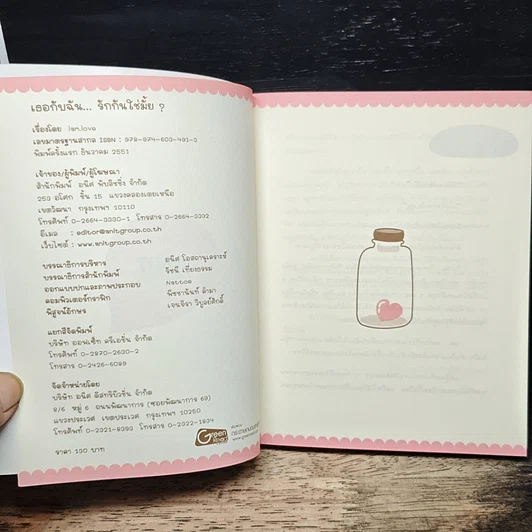 เธอกับฉัน... รักกันใช่มั้ย ?
เรื่องโดย /sn.love
เลขมาตรฐานสากล ISBN : 978-974-603-491-3
พิมพ์ครั้งแรก ธันวาคม 2551
เจ้าของ/ผู้พิมพ์/ผู้โฆษณา
สำนักพิมพ์ อนิศ พับลิชชิ่ง จำกัด
253 อโศก ชั้น 15 แขวงคลองเตยเหนือ
เขตวัฒนา กรุงเทพฯ 10110
โทรศัพท์ 0-2664-3330-1 โทรสาร 0-2664-3332
อีเมล : editor@anitgroup.co.th
เว็บไซต์ : www.anitgroup.co.th
บรรณาธิการบริหาร อนิศ โอสถานุเคราะห์
บรรณาธิการสำนักพิมพ์ รัชนี เที่ยงธรรม
ออกแบบปกและภาพประกอบ Nattoe
คอมพิวเตอร์กราฟิก พิชชานันท์ ลำมา
พิสูจน์อักษร เจนจิรา วิบูลย์ศักดิ์
แยกสีจัดพิมพ์
บริษัท ออนเซ็ท ครีเอชั่น จำกัด
โทรศัพท์ 0-2870-2630-2
โทรสาร 0-2426-6089
จัดจำหน่ายโดย
บริษัท อนิศ ดิสทริบิวชั่น จำกัด
8/6 หมู่ 6 ถนนพัฒนาการ (ซอยพัฒนาการ 69)
แขวงประเวศ เขตประเวศ กรุงเทพฯ 10250
โทรศัพท์ 0-2321-8393 โทรสาร 0-2322-1934
ราคา 130 บาท
Green Read